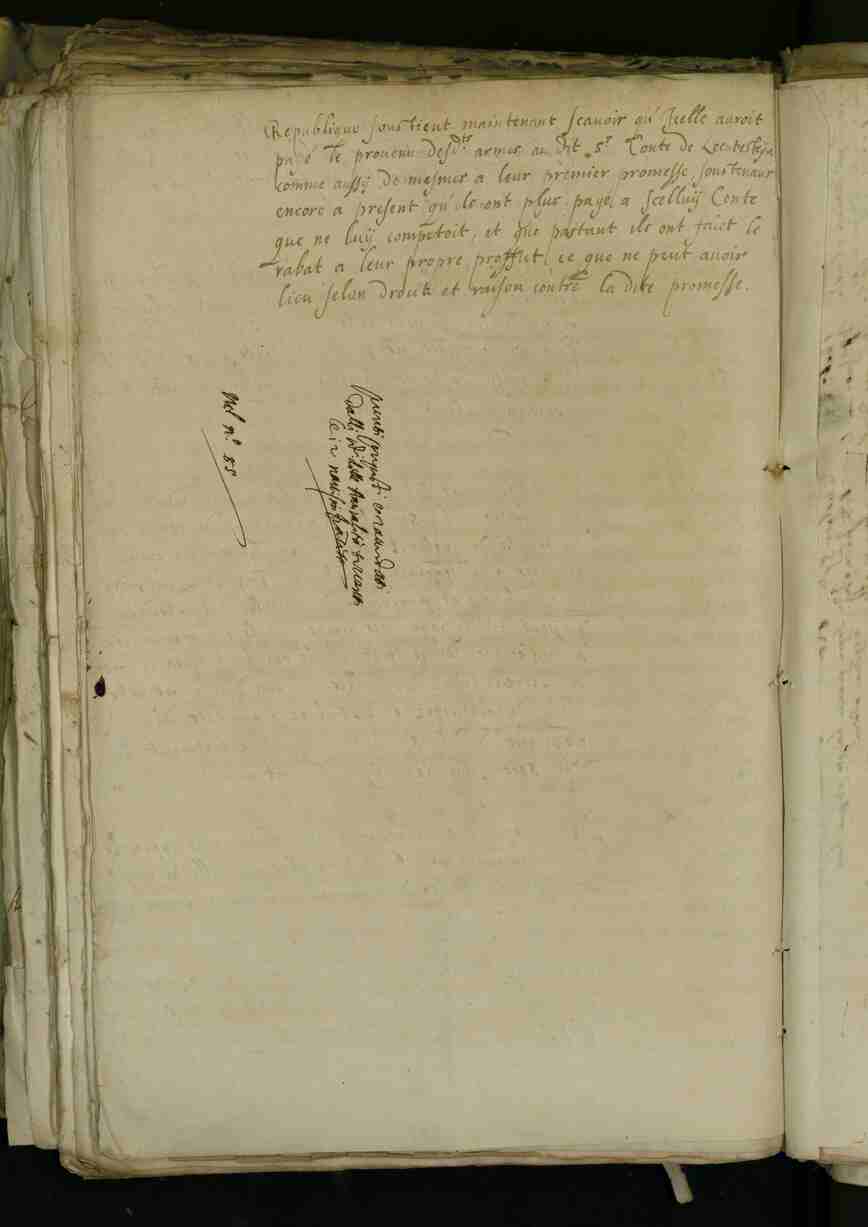 Republique soustient maintenant scavoir qu'Icelle auroit
payé le provenu desd.ts armes au dit Sr Conte de
comme aussy de mesmes a leur premier promesse, soustenant
encore a present qu'ils ont plus payé a Icelluy Conte
que ne luy competoit, et que partant ils ont faict le
rabat a leur propre proffit, ce que ne peut avoir
lieu selon droict et raison contre la dite promesse.
Nel n.o 85
Punti
dalli